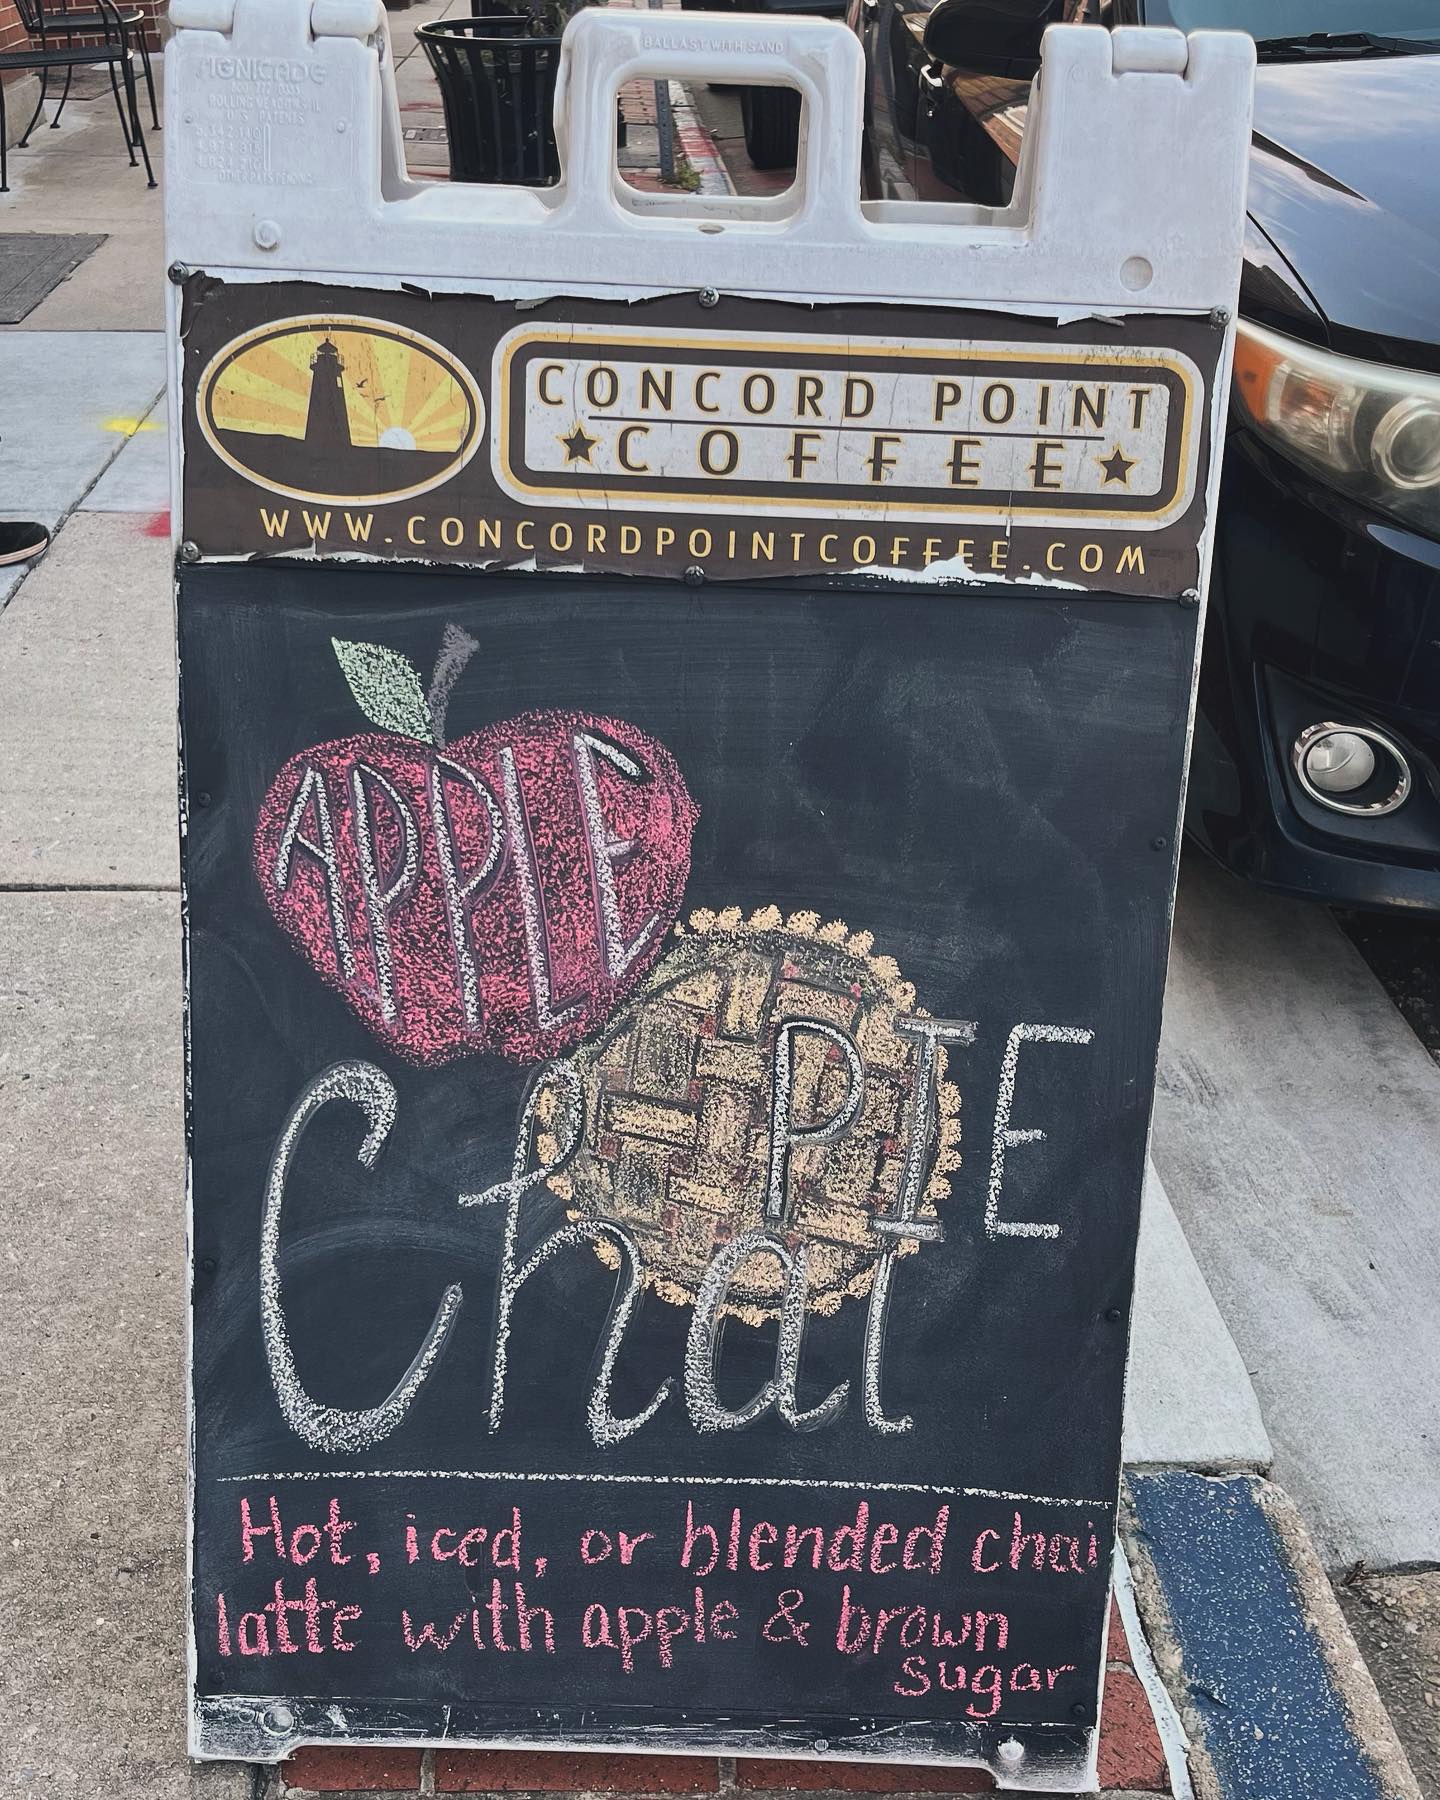 BALLAST WITH SAND
SIGNICADE
ROLLING MEADOWS IL
U.S. PATENTS
OTHER PATS PENDING
CONCORD POINT
COFFEE
WWW.CONCORDPOINTCOFFEE.COM
APPLE
PIE
Chai
Hot, iced, or blended chai
latte with apple & brown
sugar